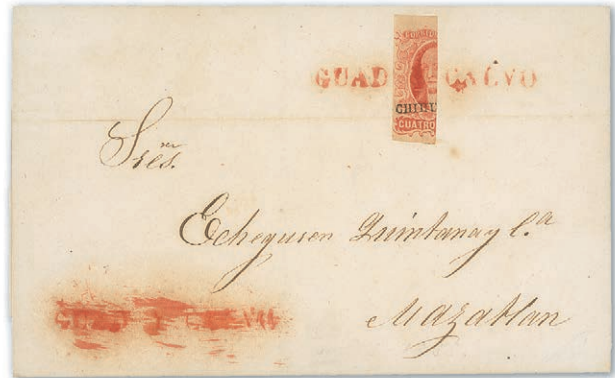 CORREOS
GUAD CALVO
CHIHU
CUATRO
Sres.
Echeguren Quintana y C.a
Mazatlan